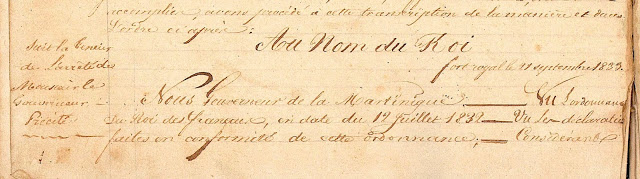 accomplir, avons procédé à cette transcription de la manière et dans
l'ordre ci après:
Au Nom du Roi
fort royal le 21 septembre 1833.
Suit la teneur
de L'arrêté de
Monsieur le
Gouverneur
Précité
Nous Gouverneur de la Martinique Vu L'ordonnance
du Roi des français, en date du 12 Juillet 1832 Vu Les
faites en conformité de cette ordonnance; Considérant